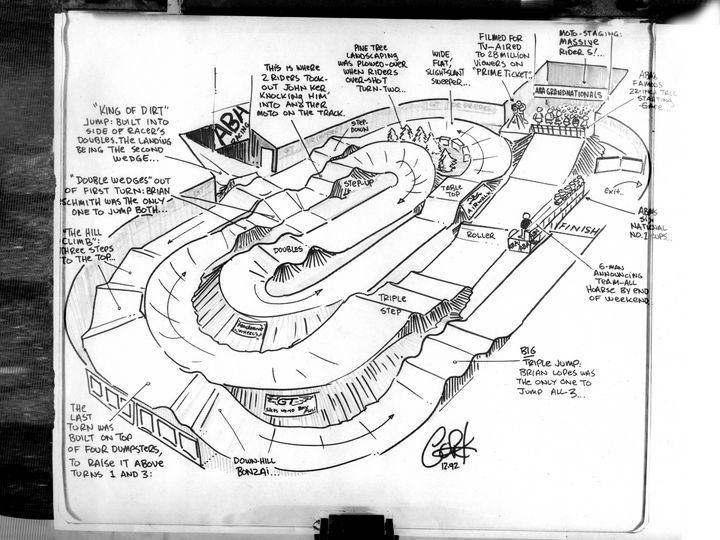 "KING OF DIRT"
JUMP: BUILT INTO
SIDE OF RACER'S
DOUBLES. THE LANDING
BEING THE SECOND
WEDGE...
"DOUBLE WEDGES" OUT
OF FIRST TURN: BRIAN
SCHMITH WAS THE ONLY
ONE TO JUMP BOTH...
"THE HILL
CLIMB":
THREE STEPS
TO THE TOP...
THE
LAST
TURN WAS
BUILT ON TOP
OF FOUR DUMPSTERS,
TO RAISE IT ABOVE
TURNS 1 AND 3:
ABA
THIS IS WHERE
2 RIDERS TOOK-
OUT JOHN KER,
KNOCKING HIM
INTO ANOTHER
MOTO ON THE TRACK.
PINE TREE
LANDSCAPING
WAS PLOWED-OVER
WHEN RIDERS
OVER-SHOT
TURN-TWO...
WIDE,
FLAT,
SLIGHT-SLANT
SWEEPER...
FILMED FOR
TV-AIRED
TO 28 MILLION
VIEWERS ON
"PRIME TICKET"...
MOTO-STAGING:
MASSIVE
RIDERS!...
ABA'S
FAMOUS
22-INCH TALL
STARTING
GATE...
ABA GRANDNATIONALS
STEP-
DOWN
STEP-UP
TABLE
TOP
DOUBLES
ROLLER
FINISH
EXIT...
ABA'S
SIX
NATIONAL
NO. 1 CUPS...
6-MAN
ANNOUNCING
TEAM-ALL
HOARSE BY END
OF WEEKEND
TRIPLE
STEP
BIG
TRIPLE JUMP:
BRIAN LOPES WAS
THE ONLY ONE TO
JUMP ALL-3...
GT
DOWN-HILL
BONZAI...
GORK
12.92